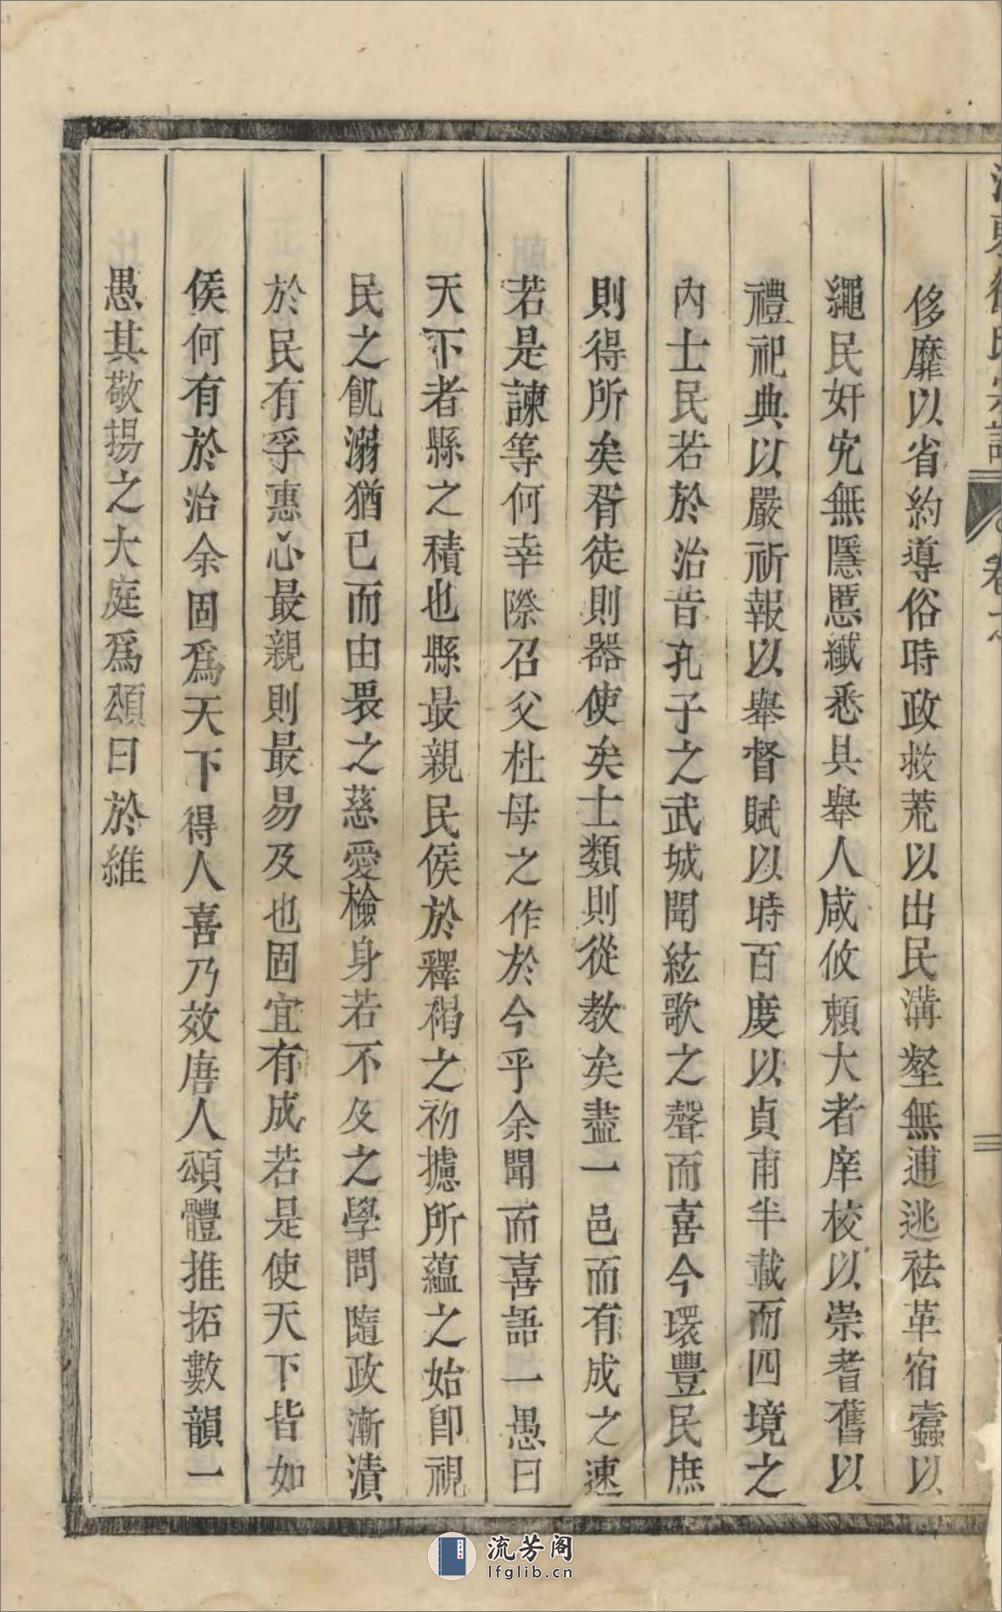 侈靡以省約導俗時政救荒以出民溝壑無逋逃袪革宿蠹以
繩民奸宄無隱慝纖悉具舉人咸攸賴大者庠校以崇耆舊以
禮祀典以嚴祈報以舉督賦以時百度以貞甫半載而四境之
內士民若於治昔孔子之武城聞絃歌之聲而喜今環豐民庶
則得所矣胥徒則器使矣士類則從教矣盡一邑而有成之速
若是諫等何幸際召父杜母之作於今乎余聞而喜語一愚曰
天下者縣之積也縣最親民侯於釋褐之初攄所蘊之始卽視
民之飢溺猶己而由畏之慈愛檢身若不及之學問隨政漸漬
於民有孚惠心最親則最易及也固宜有成若是使天下皆如
侯何有於治余固爲天下得人喜乃效唐人頌體推拓數韻一
愚其敬揚之大庭爲頌曰於維
流芳阁
lfglib.cn